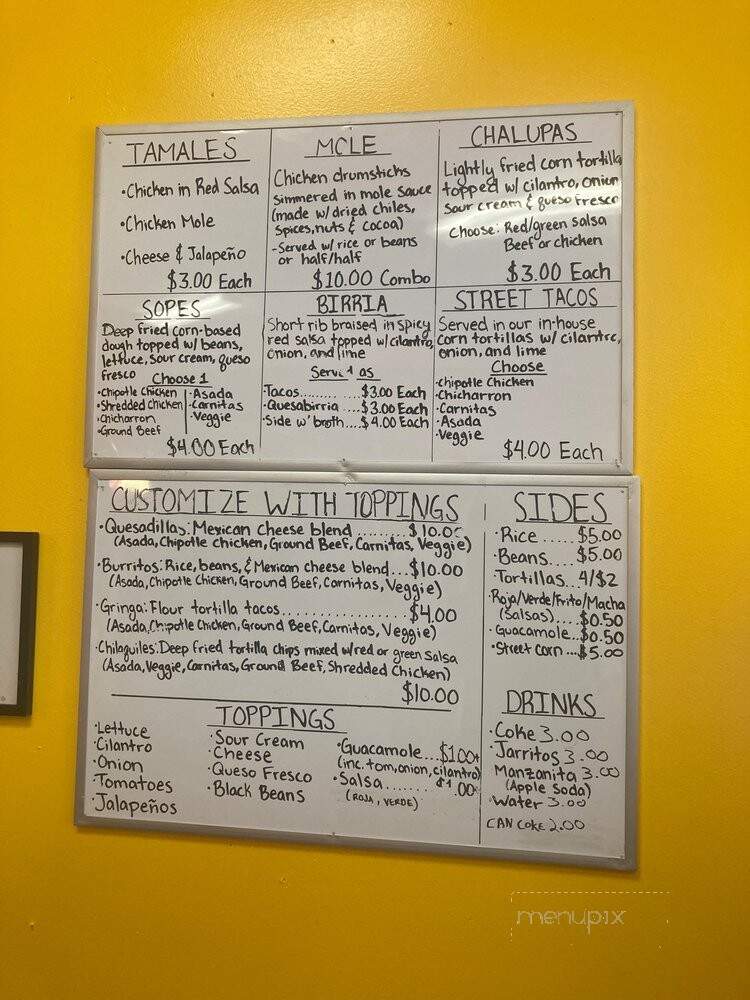 TAMALES
•Chicken in Red Salsa
•Chicken Mole
•Cheese & Jalapeño
$3.00 Each
MOLE
Chicken drumsticks
simmered in mole sauce
(made w/ dried chiles,
spices, nuts & cocoa)
-Served w/ rice or beans
or half/half
$10.00 Combo
CHALUPAS
Lightly fried corn tortilla
topped w/ cilantro, onion
sour cream & queso fresco
Choose: Red/green salsa
Beef or chicken
$3.00 Each
SOPES
Deep fried corn-based
dough topped w/ beans,
lettuce, sour cream, queso
fresco
Choose 1
•Chipotle Chicken
•Shredded Chicken
•Chicharron
•Ground Beef
•Asada
•Carnitas
•Veggie
$4.00 Each
BIRRIA
Short rib braised in spicy
red salsa topped w/ cilantro,
onion, and lime
as
•Tacos......... $3.00 Each
•Quesabirria ....$3.00 Each
•Side w/ broth....$4.00 Each
STREET TACOS
Served in our in-house
corn tortillas w/ cilantro,
onion, and lime
Choose
•Chipotle Chicken
•Chicharron
•Carnitas
•Asada
•Veggie
$4.00 Each
CUSTOMIZE WITH TOPPINGS
•Quesadillas: Mexican Cheese blend ........$10.00
(Asada, Chipotle Chicken, Ground Beef, Carnitas, Veggie)
•Burritos: Rice, beans, & Mexican cheese blend...$10.00
(Asada, Chipotle Chicken, Ground Beef, Carnitas, Veggie)
•Gringa: Flour tortilla tacos................$4.00
(Asada, Chipotle Chicken, Ground Beef, Carnitas, Veggie)
•Chilaquiles: Deep fried tortilla chips mixed w/red or green salsa
(Asada, Veggie, Carnitas, Ground Beef, Shredded Chicken)
$10.00
TOPPINGS
•Lettuce
•Cilantro
•Onion
•Tomatoes
•Jalapeños
•Sour Cream
•Cheese
•Queso Fresco
•Black Beans
•Guacamole...$1.00+
(inc. tom, onion, cilantro)
•Salsa....... $1.00
(ROJA, VERDE)
SIDES
•Rice ......$5.00
•Beans....$5.00
•Tortillas...4/$2
•Roja/Verde/Frito/Macha
(Salsas)....$0.50
•Guacamole..$0.50
•Street corn...$5.00
DRINKS
•Coke 3.00
•Jarritos 3.00
Manzanita 3.00
(Apple Soda)
•Water 3.00
CAN COKE 2.00
menupix